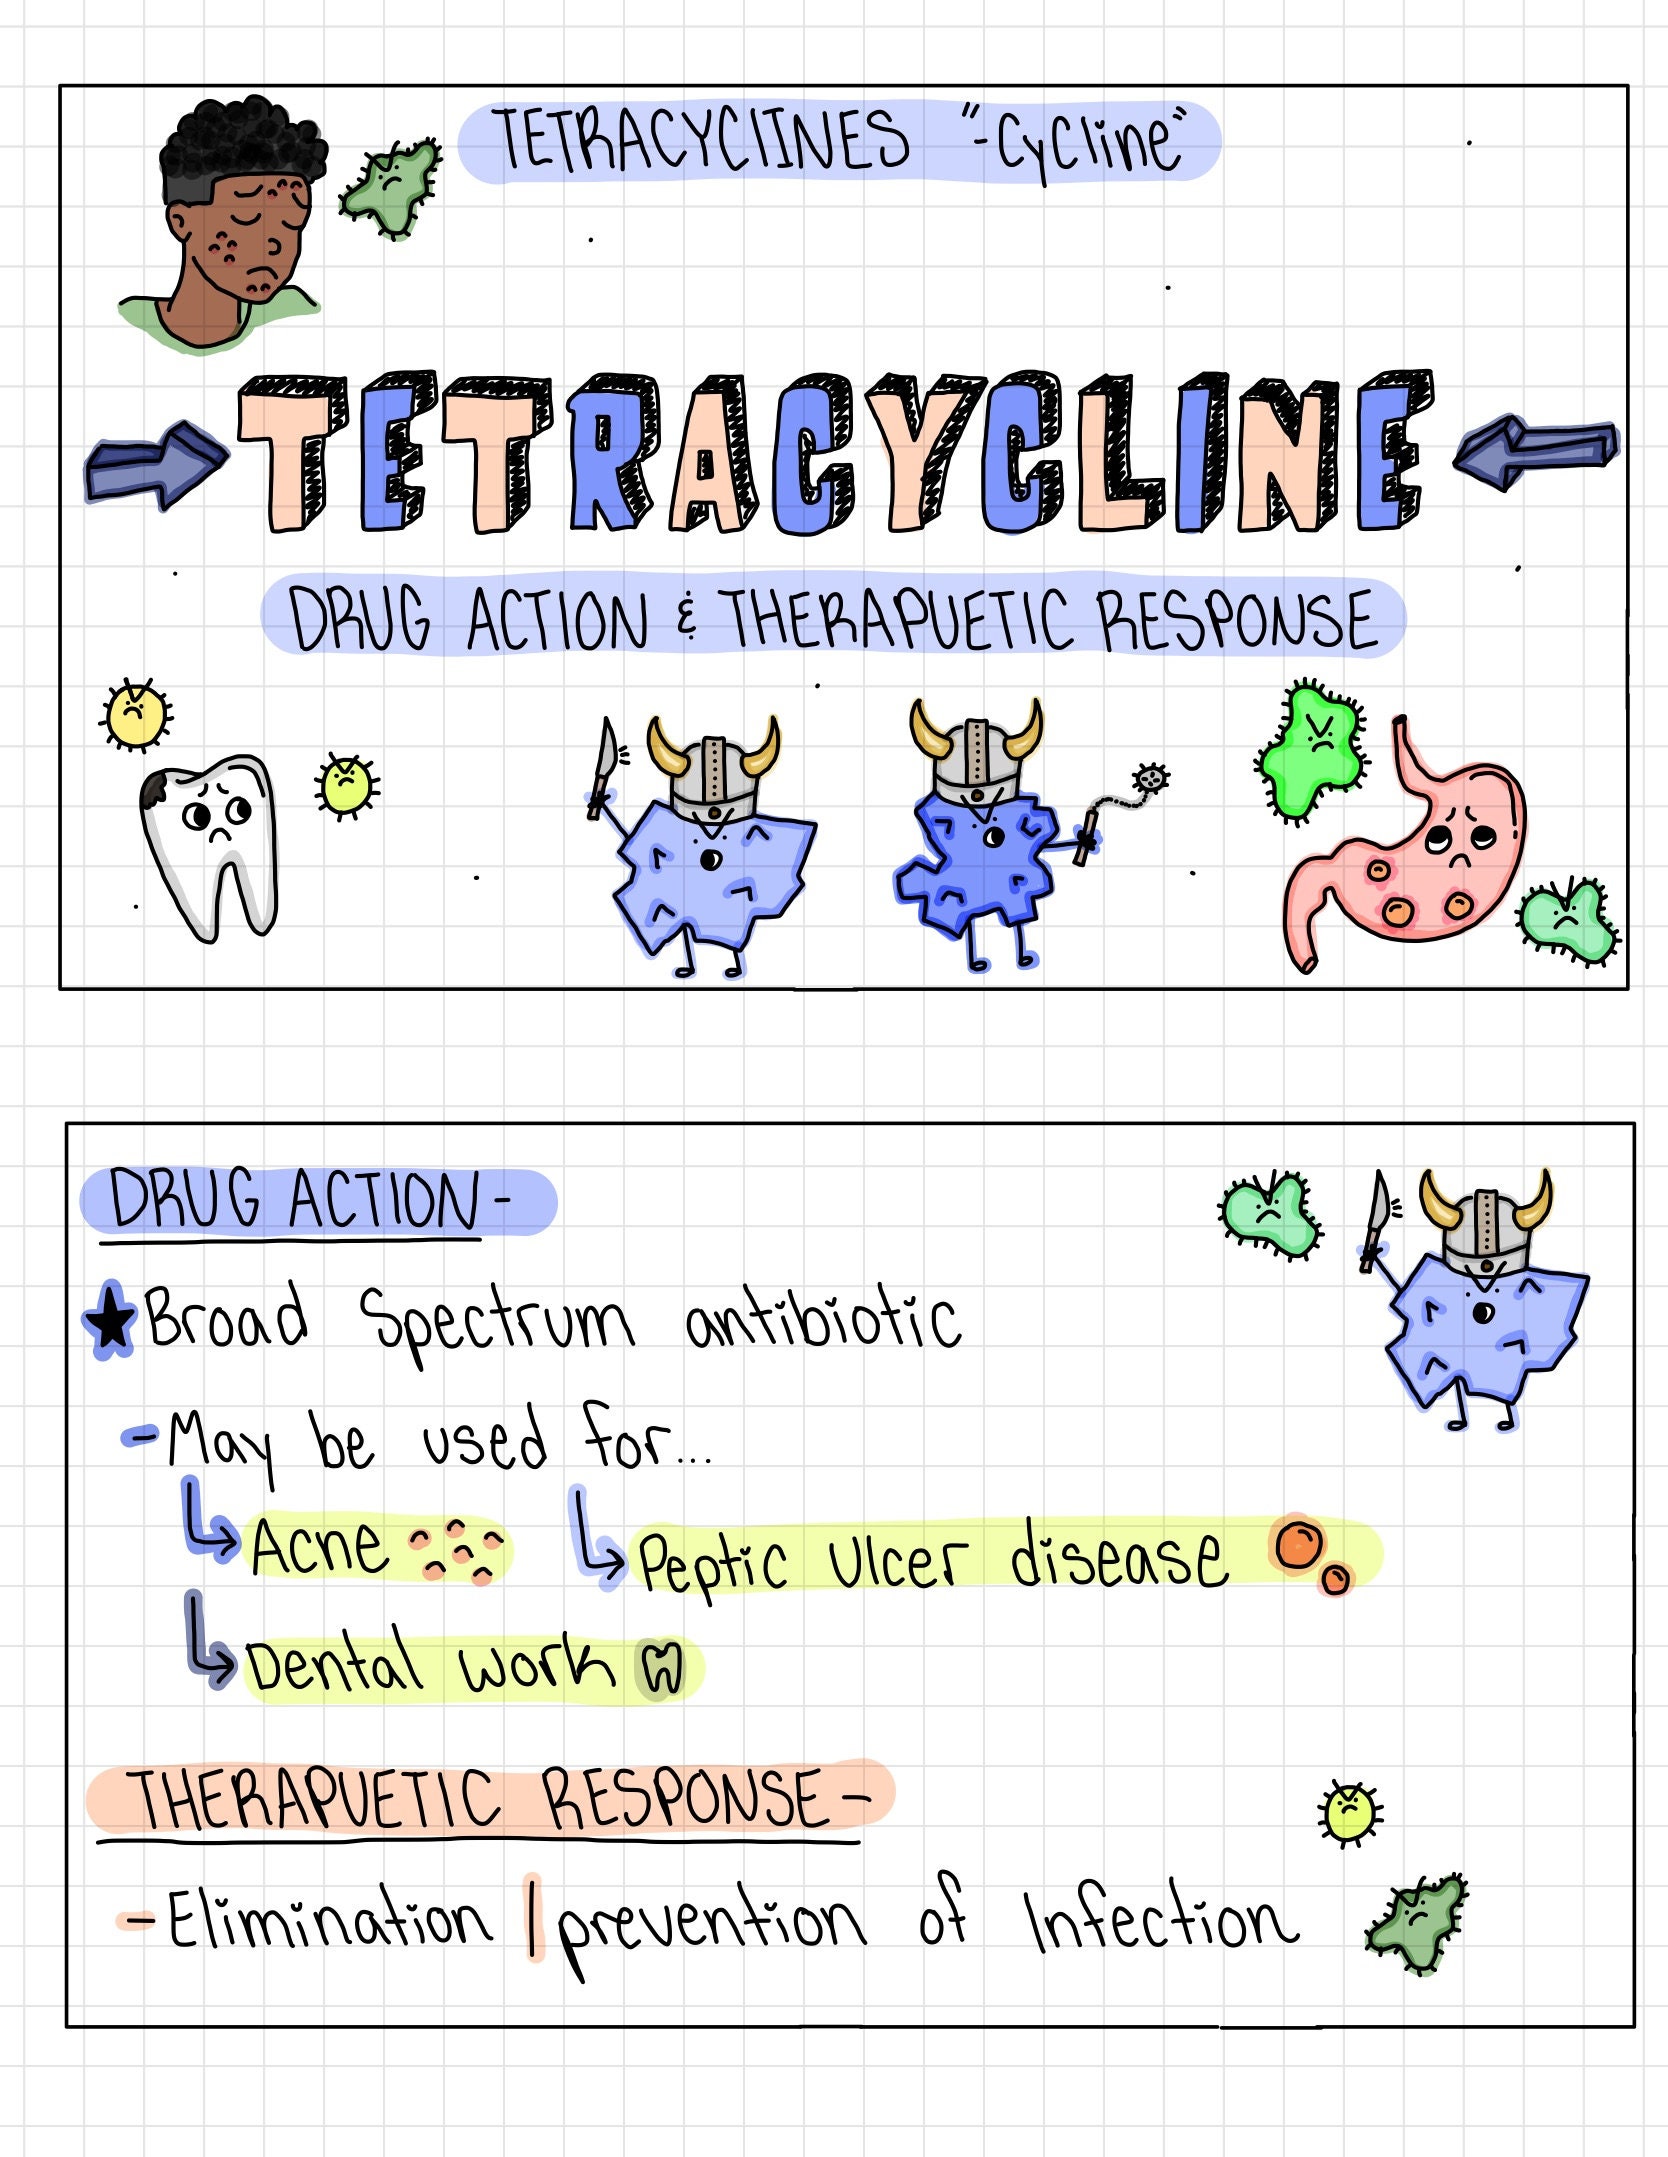 TETRACYCLINES "-Cycline"
TETRACYCLINE
DRUG ACTION & THERAPUETIC RESPONSE
DRUG ACTION-
★ Broad Spectrum antibiotic
- May be used for...
Acne
Peptic Ulcer disease
Dental work
THERAPUETIC RESPONSE-
- Elimination | prevention of Infection